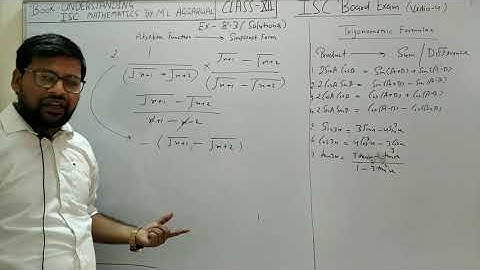 BOOK UNDERSTANDING
ISC MATHEMATICS BY ML AGGARWAL
CLASS-XII
ISC Board Exam (Video-4)
Ex-8.3 (Solutions)
Algebraic Function → Simplest Form
2
1/(√x+1 + √x+2) × (√x+1 − √x+2)/(√x+1 − √x+2)
(√x+1 − √x+2)/(x+1−x−2)
− (√x+1 − √x+2)
Trigonometric Formulae
Product → Sum / Difference
1. 2SinA CosB = Sin(A+B) + Sin(A-B)
2. 2CosA SinB = Sin(A+B) - Sin(A-B)
3. 2CosA CosB = Cos(A+B) + Cos(A-B)
4. 2SinA SinB = Cos(A-B) - Cos(A+B)
Sin3x = 3Sinx - 4Sin³x
Cos3x = 4Cos³x - 3Cosx
tan3x = (3tanx - tan³x)/(1 - 3tan²x)